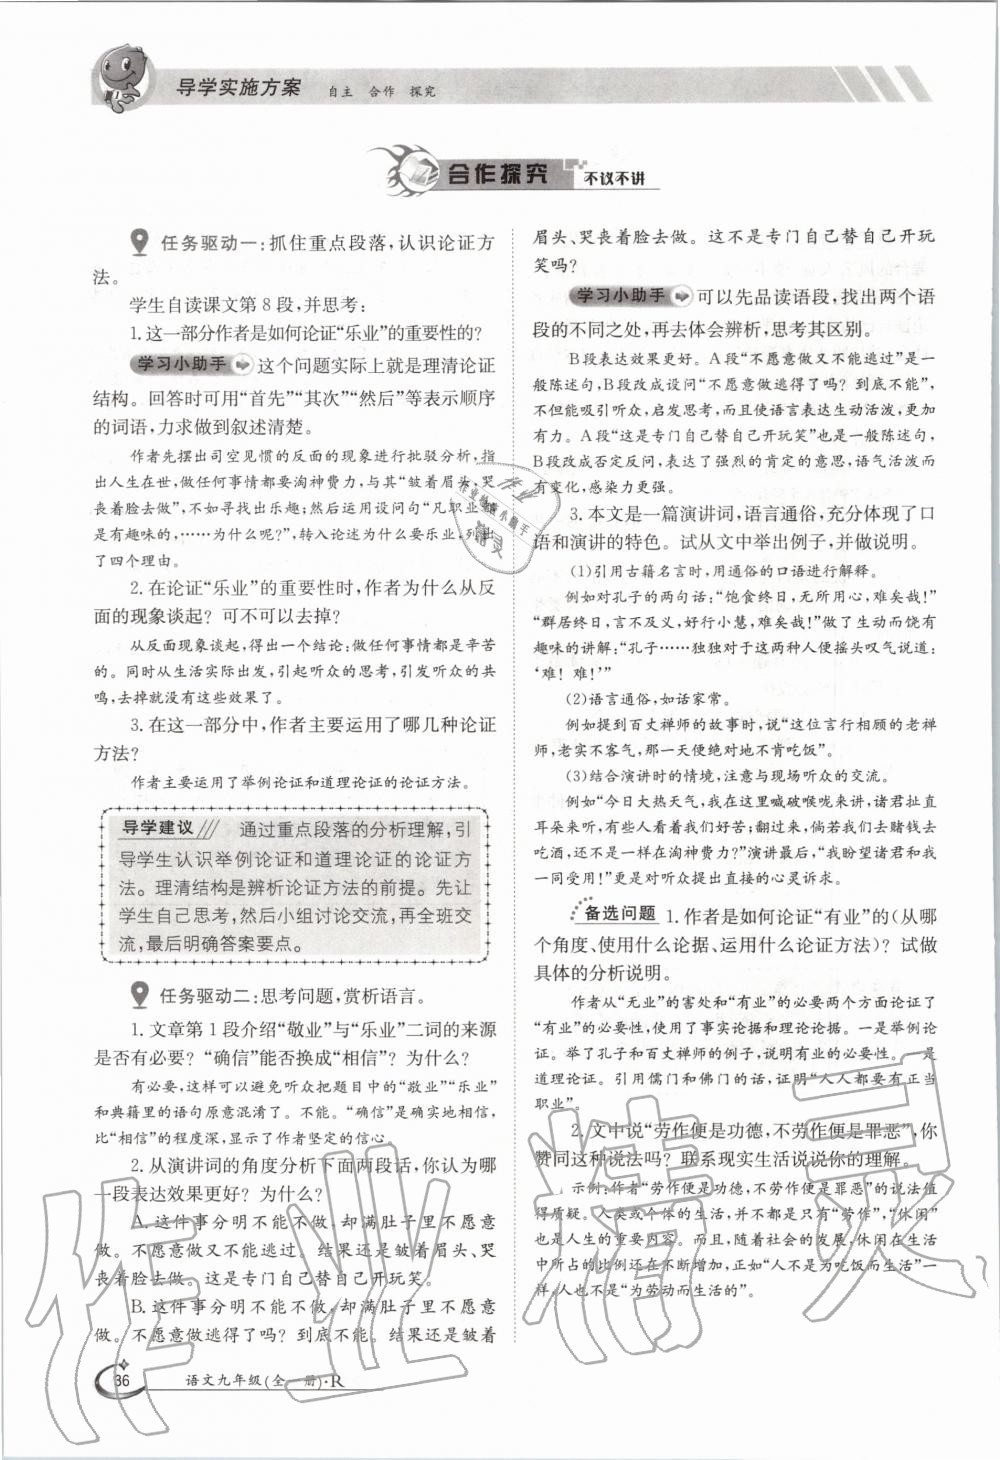 导学实施方案 自主 合作 探究
合作探究 不议不讲
任务驱动一:抓住重点段落,认识论证方
法。
学生自读课文第8段,并思考:
1.这一部分作者是如何论证“乐业”的重要性的?
学习小助手 这个问题实际上就是理清论证
结构。回答时可用“首先”“其次”“然后”等表示顺序
的词语,力求做到叙述清楚。
作者先摆出司空见惯的反面的现象进行批驳分析,指
出人生在世,做任何事情都要淘神费力,与其“皱着眉头、哭
丧着脸去做”,不如寻找出乐趣;然后运用设问句“凡职业都
是有趣味的,……为什么呢?”,转入论述为什么要乐业,列出
了四个理由。
2.在论证“乐业”的重要性时,作者为什么从反
面的现象谈起?可不可以去掉?
从反面现象谈起,得出一个结论:做任何事情都是辛苦
的。同时从生活实际出发,引起听众的思考,引发听众的共
鸣,去掉就没有这些效果了。
3.在这一部分中,作者主要运用了哪几种论证
方法?
作者主要运用了举例论证和道理论证的论证方法。
导学建议 通过重点段落的分析理解,引
导学生认识举例论证和道理论证的论证方
法。理清结构是辨析论证方法的前提。先让
学生自己思考,然后小组讨论交流,再全班交
流,最后明确答案要点。
任务驱动二:思考问题,赏析语言。
1.文章第1段介绍“敬业”与“乐业”二词的来源
是否有必要?“确信”能否换成“相信”?为什么?
有必要,这样可以避免听众把题目中的“敬业”“乐业”
和典籍里的语句原意混淆了。不能。“确信”是确实地相信,
比“相信”的程度深,显示了作者坚定的信心。
2.从演讲词的角度分析下面两段话,你认为哪
一段表达效果更好?为什么?
A.这件事分明不能不做,却满肚子里不愿意
做。不愿意做又不能逃过。结果还是皱着眉头、哭
丧着脸去做。这是专门自己替自己开玩笑。
B.这件事分明不能不做,却满肚子里不愿意
做。不愿意做逃得了吗?到底不能。结果还是皱着
眉头、哭丧着脸去做。这不是专门自己替自己开玩
笑吗?
学习小助手 可以先品读语段,找出两个语
段的不同之处,再去体会辨析,思考其区别。
B段表达效果更好。A段“不愿意做又不能逃过”是一
般陈述句,B段改成设问“不愿意做逃得了吗?到底不能”,
不但能吸引听众,启发思考,而且使语言表达生动活泼,更加
有力。A段“这是专门自己替自己开玩笑”也是一般陈述句,
B段改成否定反问,表达了强烈的肯定的意思,语气活泼而
有变化,感染力更强。
3.本文是一篇演讲词,语言通俗,充分体现了口
语和演讲的特色。试从文中举出例子,并做说明。
(1)引用古籍名言时,用通俗的口语进行解释。
例如对孔子的两句话:“饱食终日,无所用心,难矣哉!”
“群居终日,言不及义,好行小慧,难矣哉!”做了生动而饶有
趣味的讲解:“孔子……独独对于这两种人便摇头叹气说道:
‘难!难!’”
(2)语言通俗,如话家常。
例如提到百丈禅师的故事时,说“这位言行相顾的老禅
师,老实不客气,那一天便绝对地不肯吃饭”。
(3)结合演讲时的情境,注意与现场听众的交流。
例如“今日大热天气,我在这里喊破喉咙来讲,诸君扯直
耳朵来听,有些人看着我们好苦;翻过来,倘若我们去赌钱去
吃酒,还不是一样在淘神费力?”演讲最后,“我盼望诸君和我
一同受用!”更是对听众提出直接的心灵诉求。
备选问题 1.作者是如何论证“有业”的(从哪
个角度、使用什么论据、运用什么论证方法)?试做
具体的分析说明。
作者从“无业”的害处和“有业”的必要两个方面论证了
“有业”的必要性,使用了事实论据和理论论据。一是举例论
证。举了孔子和百丈禅师的例子,说明有业的必要性。一是
道理论证。引用儒门和佛门的话,证明“人人都要有正当
职业”。
2.文中说“劳作便是功德,不劳作便是罪恶”,你
赞同这种说法吗?联系现实生活说说你的理解。
示例:作者“劳作便是功德,不劳作便是罪恶”的说法值
得质疑。人类或个体的生活,并非只有“劳作”,“休闲”
也是人生的重要内容。而且,随着社会的发展,休闲在生活
中所占的比例还在不断增加,正如“人不是为吃饭而生活”一
样,人也不是“为劳动而生活”的。
36 语文九年级(全一册)·R
作业精灵